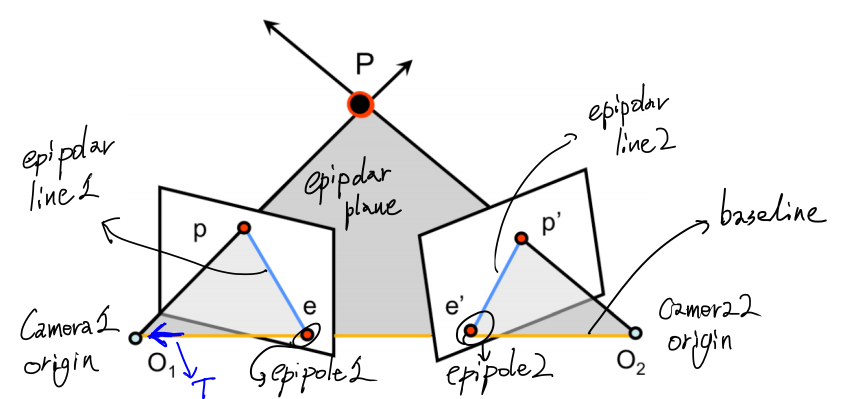 P
epipolar
line1
epipolar
line2
epipolar
plane
baseline
p
p'
e
e'
Camera1
origin
O1
T
epipole1
epipole2
O2
Camera2
origin